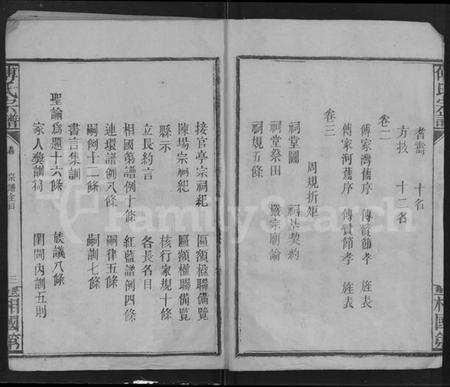 耆壽 十名
方技 十二名
卷二
傅家灣舊序 傅贊節孝 旌表
傅家河舊序 傅贊節孝 旌表
卷三
周規折矩
祠堂圖 祠基契約
祠堂祭田
祠規五條
接官亭宗祠祀 區額楹聯備覽
陳場宗祠祀 區額楹聯備覽
縣示 核行家規十條
立長約言 各長名目
相國第譜例十條 紅藍譜例四條
連環譜例八條 嗣律五條
嗣例十二條 嗣訓七條
書言集訓
聖諭為題十六條 族議八條
家人獎訓詞 閨閫內訓五則
傅氏宗譜
卷
宗譜全目
三
相國第
FamilySearch